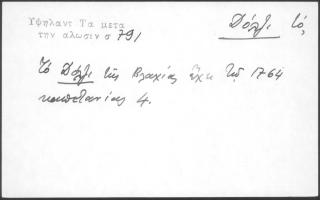 Υψηλαντ Τα μετα
την αλωσιν σ 791
Δόλζι τό,
Τό Δόλζι τῆς Βλαχίας εἶχε τῷ 1764
καπετανίας 4.